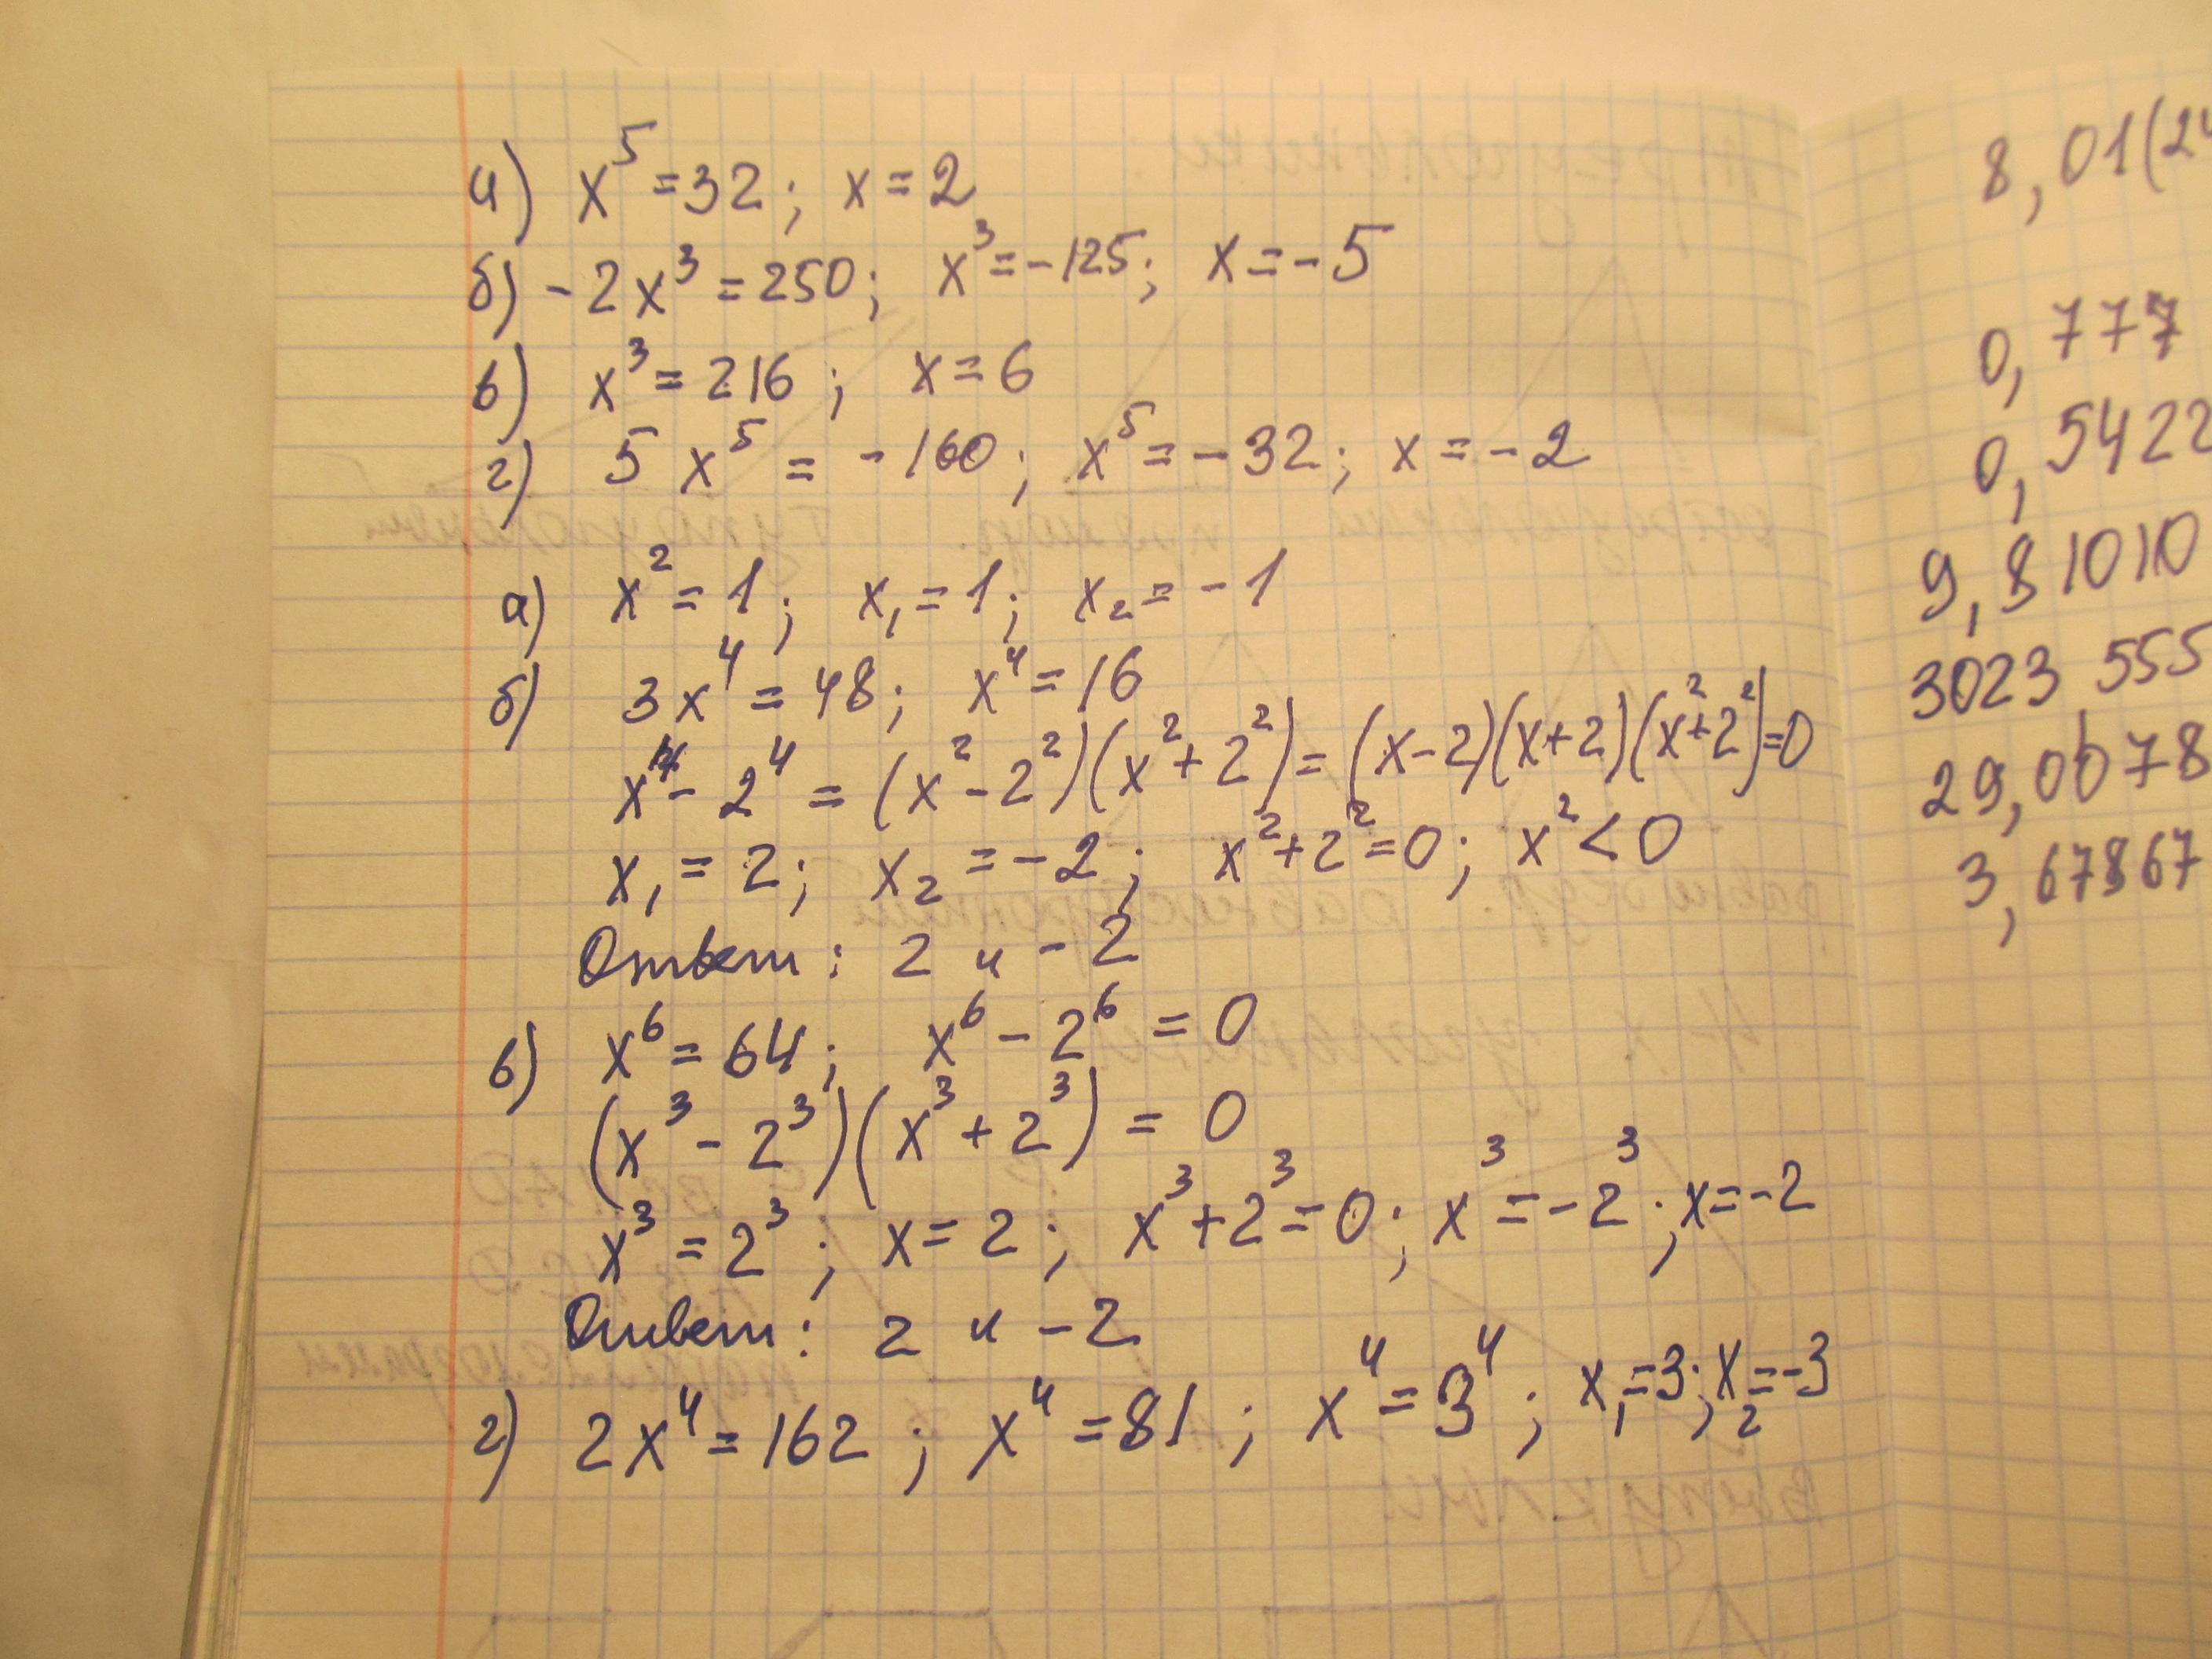 а) x⁵ = 32; x = 2
б) -2x³ = 250; x³ = -125; x = -5
в) x³ = 216; x = 6
г) 5x⁵ = -160; x⁵ = -32; x = -2
а) x² = 1; x₁ = 1; x₂ = -1
б) 3x⁴ = 48; x⁴ = 16
x⁴ - 2⁴ = (x² - 2²)(x² + 2²) = (x-2)(x+2)(x²+2²)=0
x₁ = 2; x₂ = -2; x²+2²=0; x² < 0
Ответ: 2 и -2
в) x⁶ = 64; x⁶ - 2⁶ = 0
(x³ - 2³)(x³ + 2³) = 0
x³ = 2³; x = 2; x³+2³=0; x³ = -2³; x = -2
Ответ: 2 и -2
г) 2x⁴ = 162; x⁴ = 81; x⁴ = 3⁴; x₁=3; x₂=-3
8,01(24
0,777
0,5422
9,81010
3023 555
29,0678
3,67867